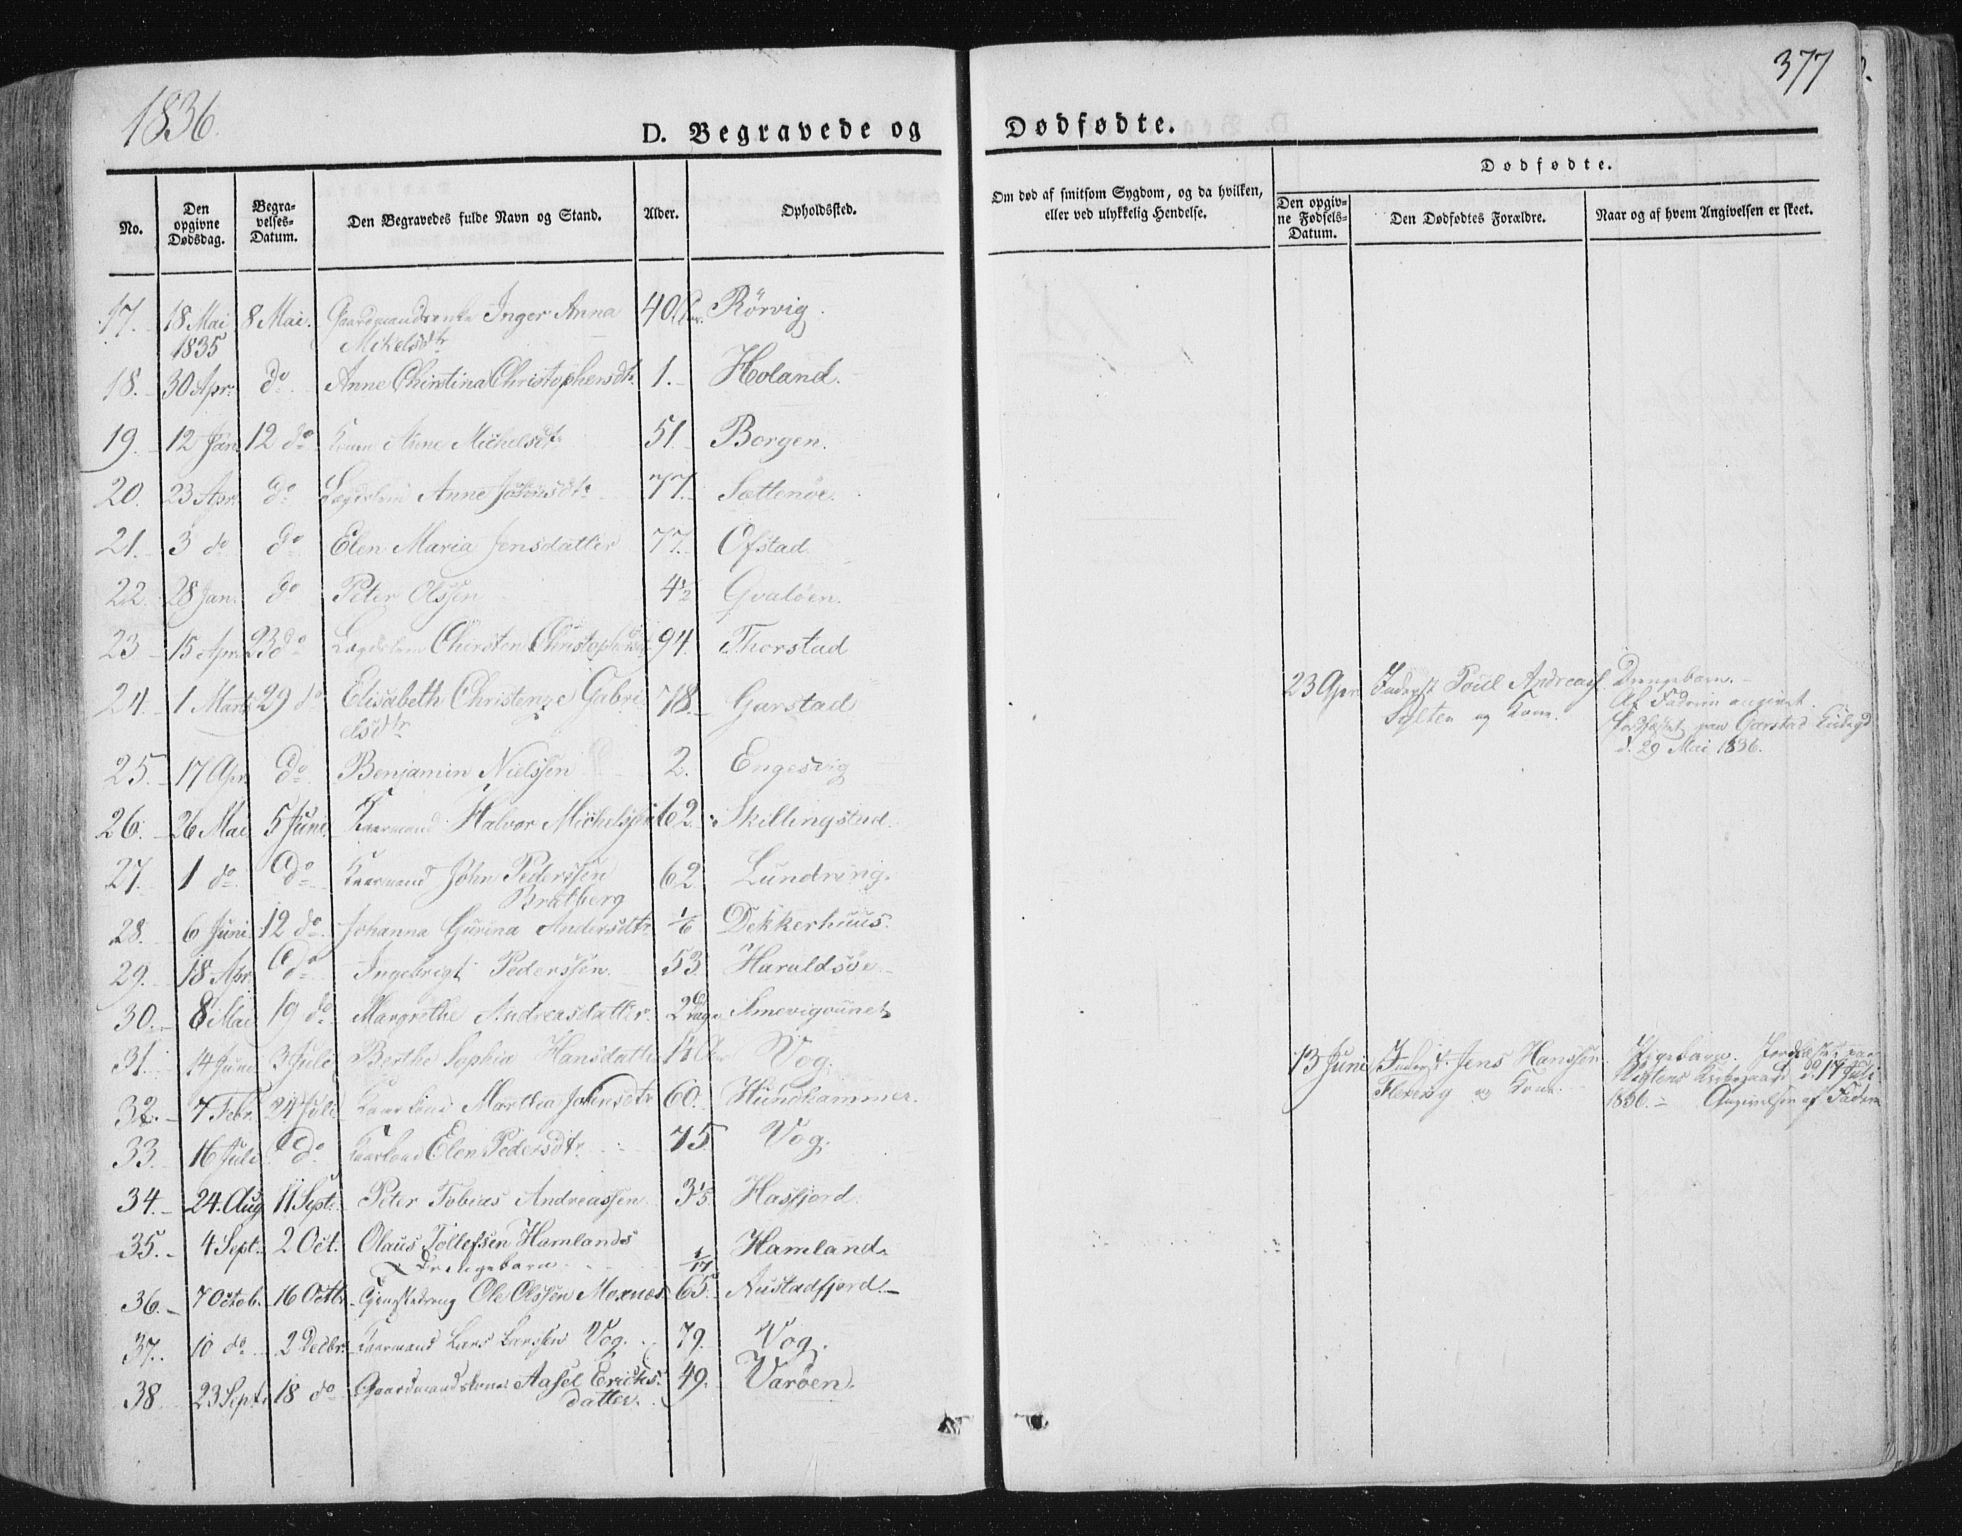 1836.
377
D. Begravede og Dødfødte.
No.
Den opgivne Dødsdag.
Begravelses-Datum.
Den Begravedes fulde Navn og Stand.
Alder.
Opholdssted.
Om død af smitsom Sygdom, og da hvilken, eller ved ulykkelig Hendelse.
Dødfødte.
Den opgivne Fødsels-Datum.
Den Dødfødtes Forældre.
Naar og af hvem Angivelsen er skeet.
17. 18 Mai 8 Mai. Gaardmandsenke Inger Anna 40 Aar. Rörvig.
1835 Mikelsdtr
18. 30 Apr. do Anne Chirstina Christophersdtr 1. Holand.
19. 12 Jan 12 do Kone Anne Michelsdtr 51. Borgen.
20. 23 Apr. do Anne 77. Sættenöe.
21. 3 do do Elen Maria Jensdatter 77. Ofstad
22. 28 Jan. do Peter Olssen 4½ Gvalöen.
23. 15 Apr. 23 do Chirsten Christophersdtr 94. Thorstad
24. 1 Marts 29 do Elisabeth Christenze Gabri 78. Garstad
elsdtr
23 Apr. Inderst Poul Andreass. Drengebarn.
Sylten og Kone. Af Faderen angivet.
Jordfæstet paa Garstad
d. 29 Mai 1836.
25. 17 Apr. do Benjamin Nielssen 2. Engesvig
26. 26 Mai 5 Juni Kaarmand Halvor Michelssen 62. Skillingstad.
27. 1 do do Kaarmand John Pederssen 62. Lundring.
Bratberg
28. 6 Juni 12 do Johanna Gurina Andersdtr 1/6 Dekkerhuus.
29. 18 Apr. do Ingebrigt Pederssen 53. Haraldsöe
30. 8 Mai 19 do Margrethe Andreasdatter 2
31. 14 Juni 3 Juli Berthe Sophia Hansdatter Vog.
13 Juni Inderst. Jens Hanssen Pigebarn. Jordfæstet paa
og Kone. Kirkegaard d. 17 Juli
1836. Angivelsen af Faderen
32. 7 Febr. 24 Juli Marthea 60. Hundhammer.
33. 16 Juli do Elen Pedersdtr 75 Vog.
34. 24. Aug 11 Sept. Peter Tobias Andreassen 3 1/5 Hasfjord.
35. 4 Sept. 2 Oct. Olaus Tollefsen Hamlands 1/17 Hamland.
Drengebarn
36. 7 Octob. 16 Octbr. Ole Olssen Moxnæs 65. Austadfjord.
37. 10 do 2 Decbr. Kaarmand Lars Larssen Vog. 79. Vog.
38 23 Sept. 18 do Gaardmandskone Aasel Erichs 49. Varöen.
datter.